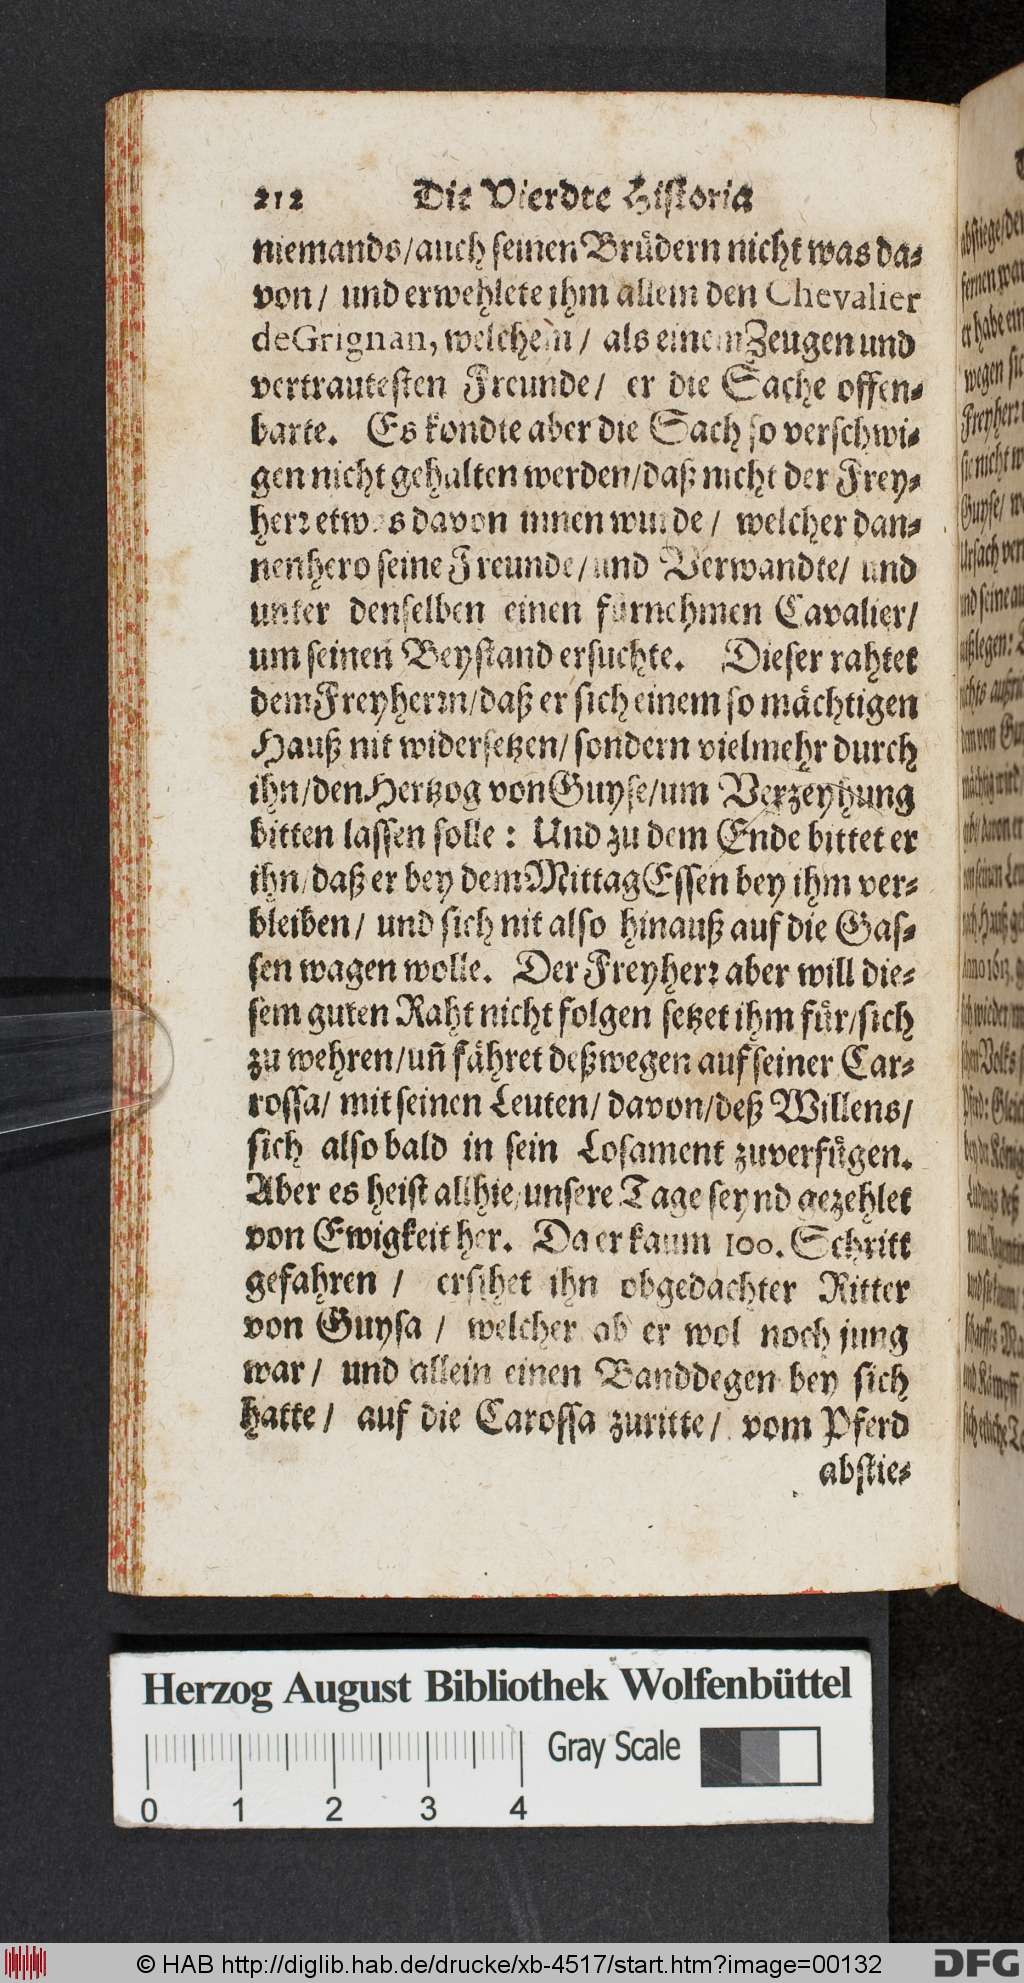 212 Die Vierdte Historia
niemands/auch seinen Brüdern nicht was da-
von/ und erwehlete ihm allein den Chevalier
de Grignan, welchem/ als einem Zeugen und
vertrautesten Freunde/ er die Sache offen-
barte. Es kondte aber die Sach so verschwi-
gen nicht gehalten werden/daß nicht der Frey-
herr etwas davon innen wurde/ welcher dan-
nenhero seine Freunde/und Verwandte/ und
unter denselben einen fürnehmen Cavalier/
um seinen Beystand ersuchte. Dieser rahtet
dem Freyherrn/daß er sich einem so mächtigen
Hauß nit widersetzen/ sondern vielmehr durch
ihn/den Hertzog von Guyse/um Verzeyhung
bitten lassen solle: Und zu dem Ende bittet er
ihn/daß er bey dem MittagEssen bey ihm ver-
bleiben/ und sich nit also hinauß auf die Gas-
sen wagen wolle. Der Freyherr aber will die-
sem guten Raht nicht folgen setzet ihm für/sich
zu wehren/uñ fähret deßwegen auf seiner Car-
rossa/ mit seinen Leuten/ davon/deß Willens/
sich also bald in sein Losament zuverfügen.
Aber es heist allhie/unsere Tage seynd gezehlet
von Ewigkeit her. Da er kaum 100. Schritt
gefahren/ ersihet ihn obgedachter Ritter
von Guysa/ welcher ob er wol noch jung
war/ und allein einen Banddegen bey sich
hatte/ auf die Carossa zuritte/ vom Pferd
abstie-
Herzog August Bibliothek Wolfenbüttel
Gray Scale
0 1 2 3 4
© HAB http://diglib.hab.de/drucke/xb-4517/start.htm?image=00132
DFG